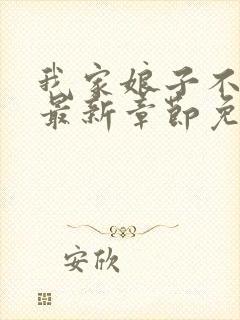 我家娘子不
最新章节免
安欣